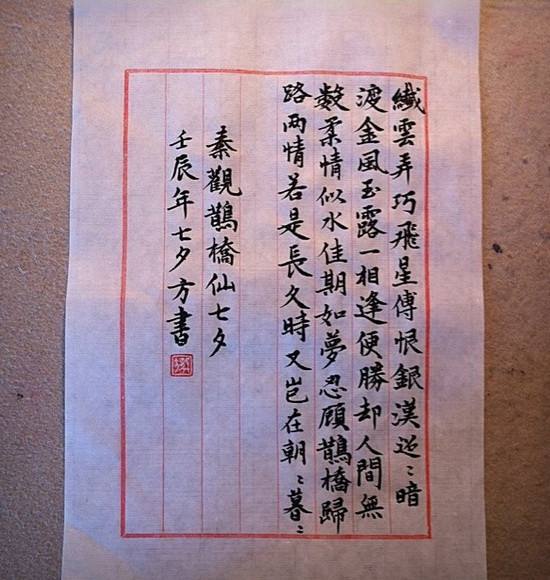 纖雲弄巧飛星傳恨銀漢迢〻暗
渡金風玉露一相逢便勝却人間無
數柔情似水佳期如夢忍顧鵲橋歸
路兩情若是長久時又豈在朝〻暮〻
秦觀鵲橋仙七夕
壬辰年七夕方書